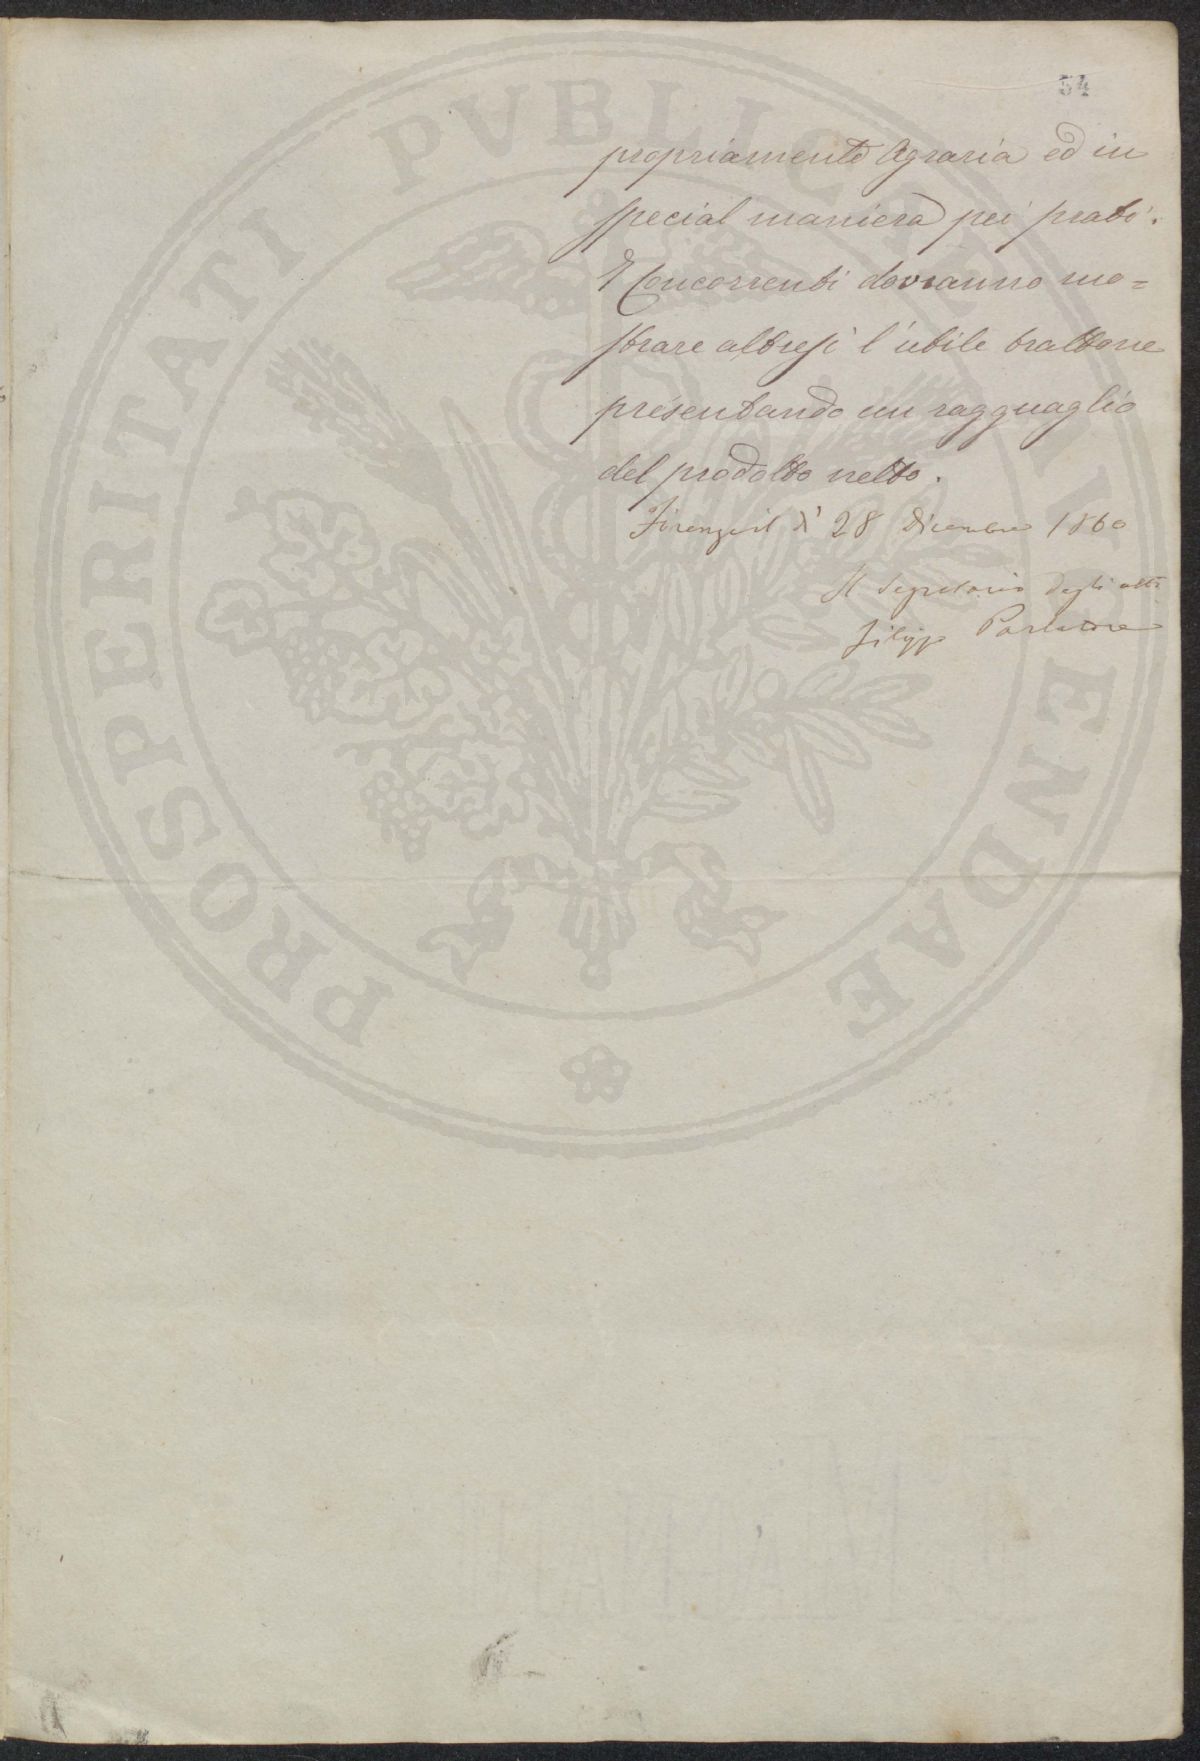 54
propriamente Agraria ed in
special maniera pei prati.
I Concorrenti dovranno mo=
strare altresì l'utile trattone
presentando un ragguaglio
del prodotto netto.
Firenze il dì 28 Dicembre 1860
Il Segretario degli atti
Filippo Parlatore
PROSPERITATI PVBLICAE AVGENDAE